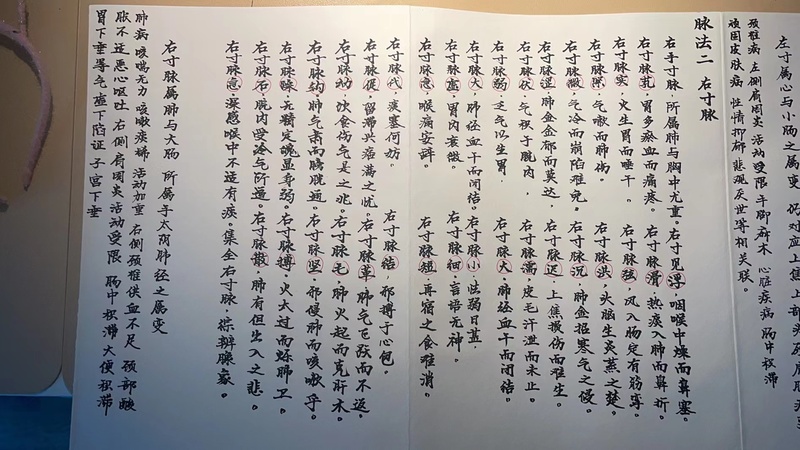 左寸以心与小肠之属变
颈椎病 左侧肩周炎 活动受限 手脚麻木 心脏疾病 肠中积滞
顽固皮肤病 性情抑郁 悲观厌世等相关联。
脉法二 右寸脉
右手寸脉,所属肺与胸中尤重。右寸见浮,咽喉中燥而鼻塞。
右寸脉芤,胃多瘀血而痛疼。右寸脉滑,热痰入肺而鼻折。
右寸脉实,火生胃而唾干。右寸脉弦,风入肠定有筋挛。
右寸脉,气嗽而肺伤。右寸脉洪,头脑生炎蒸之楚。
右寸脉微,气冷而崩陷难免。右寸脉沉,肺金招寒气之侵
右寸脉涩,肺金金郁而莫达。右寸脉迟,上焦损伤而难生。
右寸脉伏,气积于脘内,右寸脉濡,皮毛汗泄而未止。
右寸脉弱,乏气以生胃。右寸脉大,肺经血干而闭结。
右寸脉大,肺经血干而闭结。右寸脉小,怯弱日甚。
右寸脉虚,胃内衰微。右寸脉细,言语无神。
右寸脉急,喉痛安辞。右寸脉短,再宿之食难消。
右寸脉代,痰塞何妨。右寸脉结,邪搏于心包。
右寸脉促,留滞兴痞满之忧。右寸脉革,肺气已跃而不返。
右寸脉动,饮食伤气是之兆。右寸脉毛,肺火起而克肝木。
右寸脉钩,肺气肃而膀胱通。右寸脉坚,邪侵肺而咳嗽乎。
右寸脉躁,无精定魄显身弱。右寸脉搏,火太过而烁肺卫。
右寸脉石,脘内受冷气所逼。右寸脉散,肺有但出入之悲。
右寸脉,凝感喉中不适有痰。集全右寸脉,综辨臻家。
右寸脉属肺与大肠 所属手太阴肺经之属变
肺病 咳喘无力 咳嗽痰稀 活动加重 右侧颈椎供血不足 颈部酸
胀不适 恶心呕吐 右侧肩周炎 活动受限 肠中积滞 大便积滞
胃下垂等气虚下陷证 子宫下垂